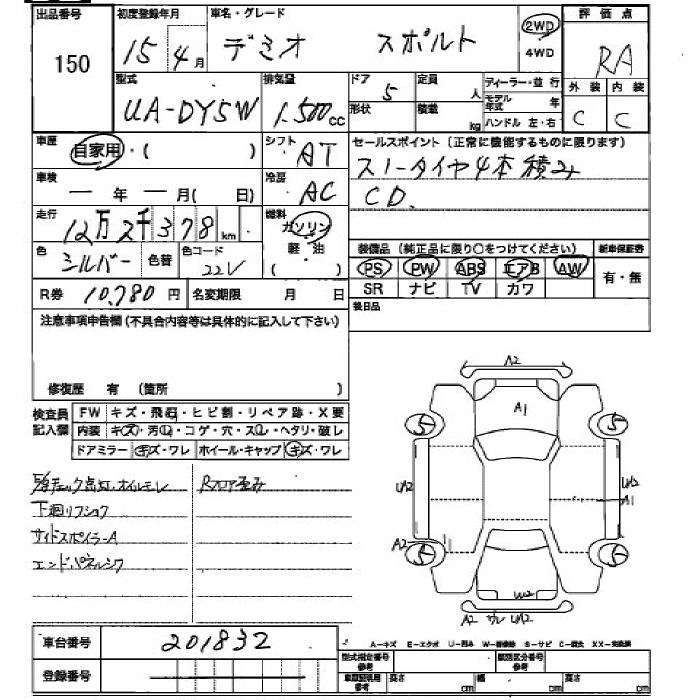 出品番号 初度登録年月 車名・グレード 評価点
150 15 4月 デミオ スポルト 2WD 4WD RA
型式 排気量 ドア 定員 ディーラー・並行 外装 内装
UA-DY5W 1.500cc 5 人 モデル年式 年 C C
形状 積載 kg ハンドル 左・右
車歴 自家用・( ) シフト AT セールスポイント(正常に機能するものに限ります)
スノータイヤ4本積み
車検 ー年ー月(日) 冷房 AC CD.
走行 12万2千378km 燃料 ガソリン 軽・油
色 シルバー 色替 色コード 22V 装備品(純正品に限り○をつけてください) 新車保証書
PS PW ABS エアB AW 有・無
R券 10,780円 名変期限 月 日 SR ナビ TV カワ
注意事項申告欄(不具合内容等は具体的に記入して下さい) 後日品
修復歴 有 (箇所 )
検査員記入欄 FW キズ・飛石・ヒビ割・リペア跡・X要
内装 キズ・汚・コゲ・穴・スレ・ヘタリ・破レ
ドアミラー キズ・ワレ ホイール・キャップ キズ・ワレ
チェック点灯・オイルモレ Rフロア歪み
下廻りフショク
サイドスポイラーA
エンドパネルシワ
A2
A1
5 5
UA2 UA2
A1
A2 1
5 5
UW2
A2 ワレ UA2
車台番号 201832
A-キズ E-エクボ U-凹み S-サビ
登録番号 型式指定番号参考 類別区分番号参考
車庫証明用参考 高さ cm 幅 cm 長さ cm